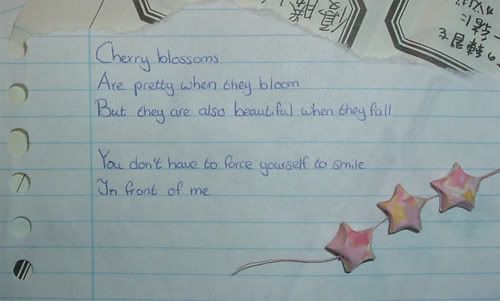 Cherry blossoms
Are pretty when they bloom
But they are also beautiful when they fall
You don't have to force yourself to smile
In front of me